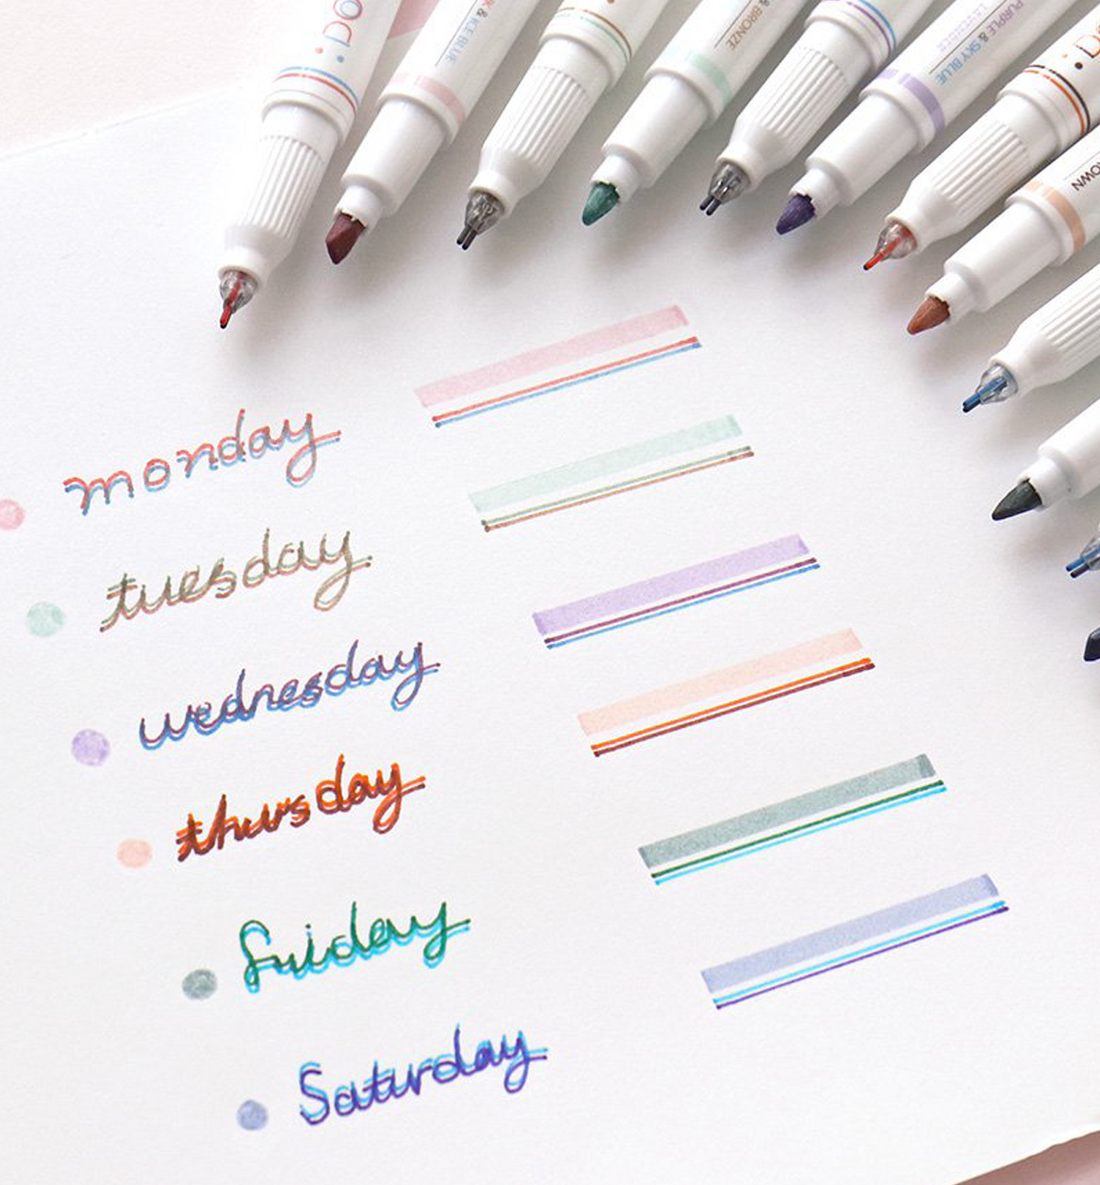 & ICE BLUE
& BRONZE
PURPLE & SKY BLUE
LAVENDER
monday
tuesday
wednesday
thursday
friday
Saturday